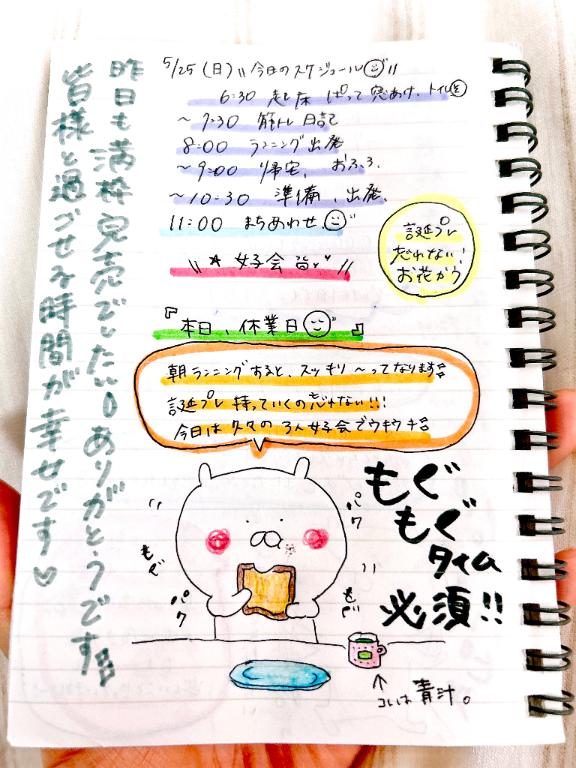 5/25(日) \\ 今日のスケジュール //
6:30 起床 ぱって窓あけ、トイレ
〜7:30 筋トレ 日記
8:00 ランニング出発
〜9:00 帰宅、おふろ。
〜10:30 準備、出発。
11:00 まちあわせ。
\\ ☆ 女子会 🐻♥ //
誕プレ
忘れない!
お花かう
『本日、休業日 』
朝ランニングすると、スッキリ〜ってなります
誕プレ持っていくの忘れない!!!
今日は久々の3人女子会でウキウキ
昨日も満枠完売でした。ありがとうです!!
皆様と過ごせる時間が幸せです♡
もぐ
もぐ
タイム
必須!!
パク
もぐ
パク
もぐ
↑
コレは青汁。